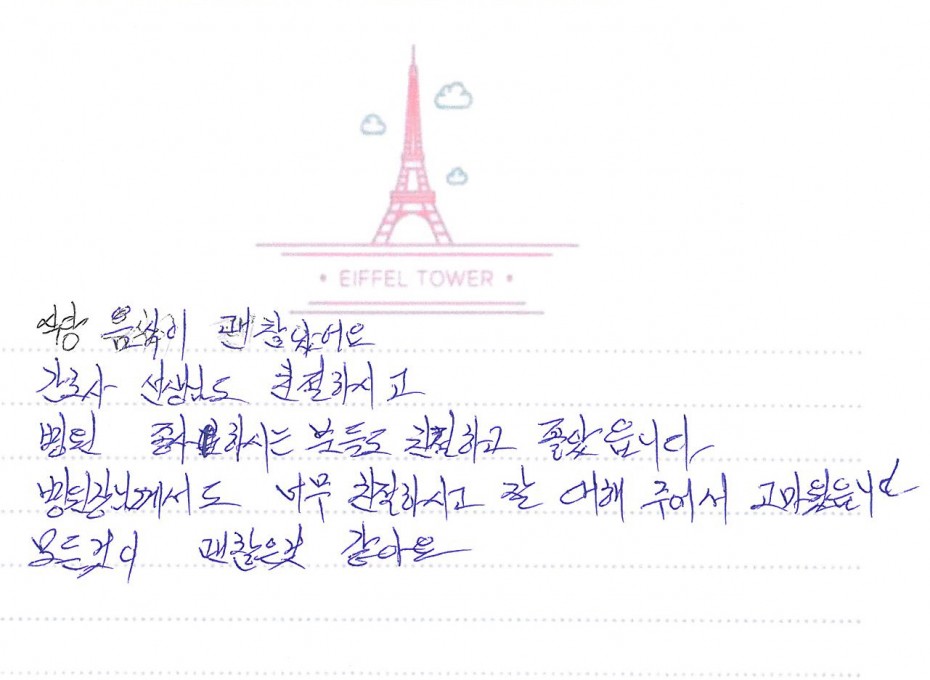 • EIFFEL TOWER •
식당 음식이 괜찮았어요
간호사 선생님도 친절하시고
병원 종사하시는 분들도 친절하고 좋았습니다
병원장님께서도 너무 친절하시고 잘 대해 주어서 고마웠습니다
모든것이 괜찮은것 같아요